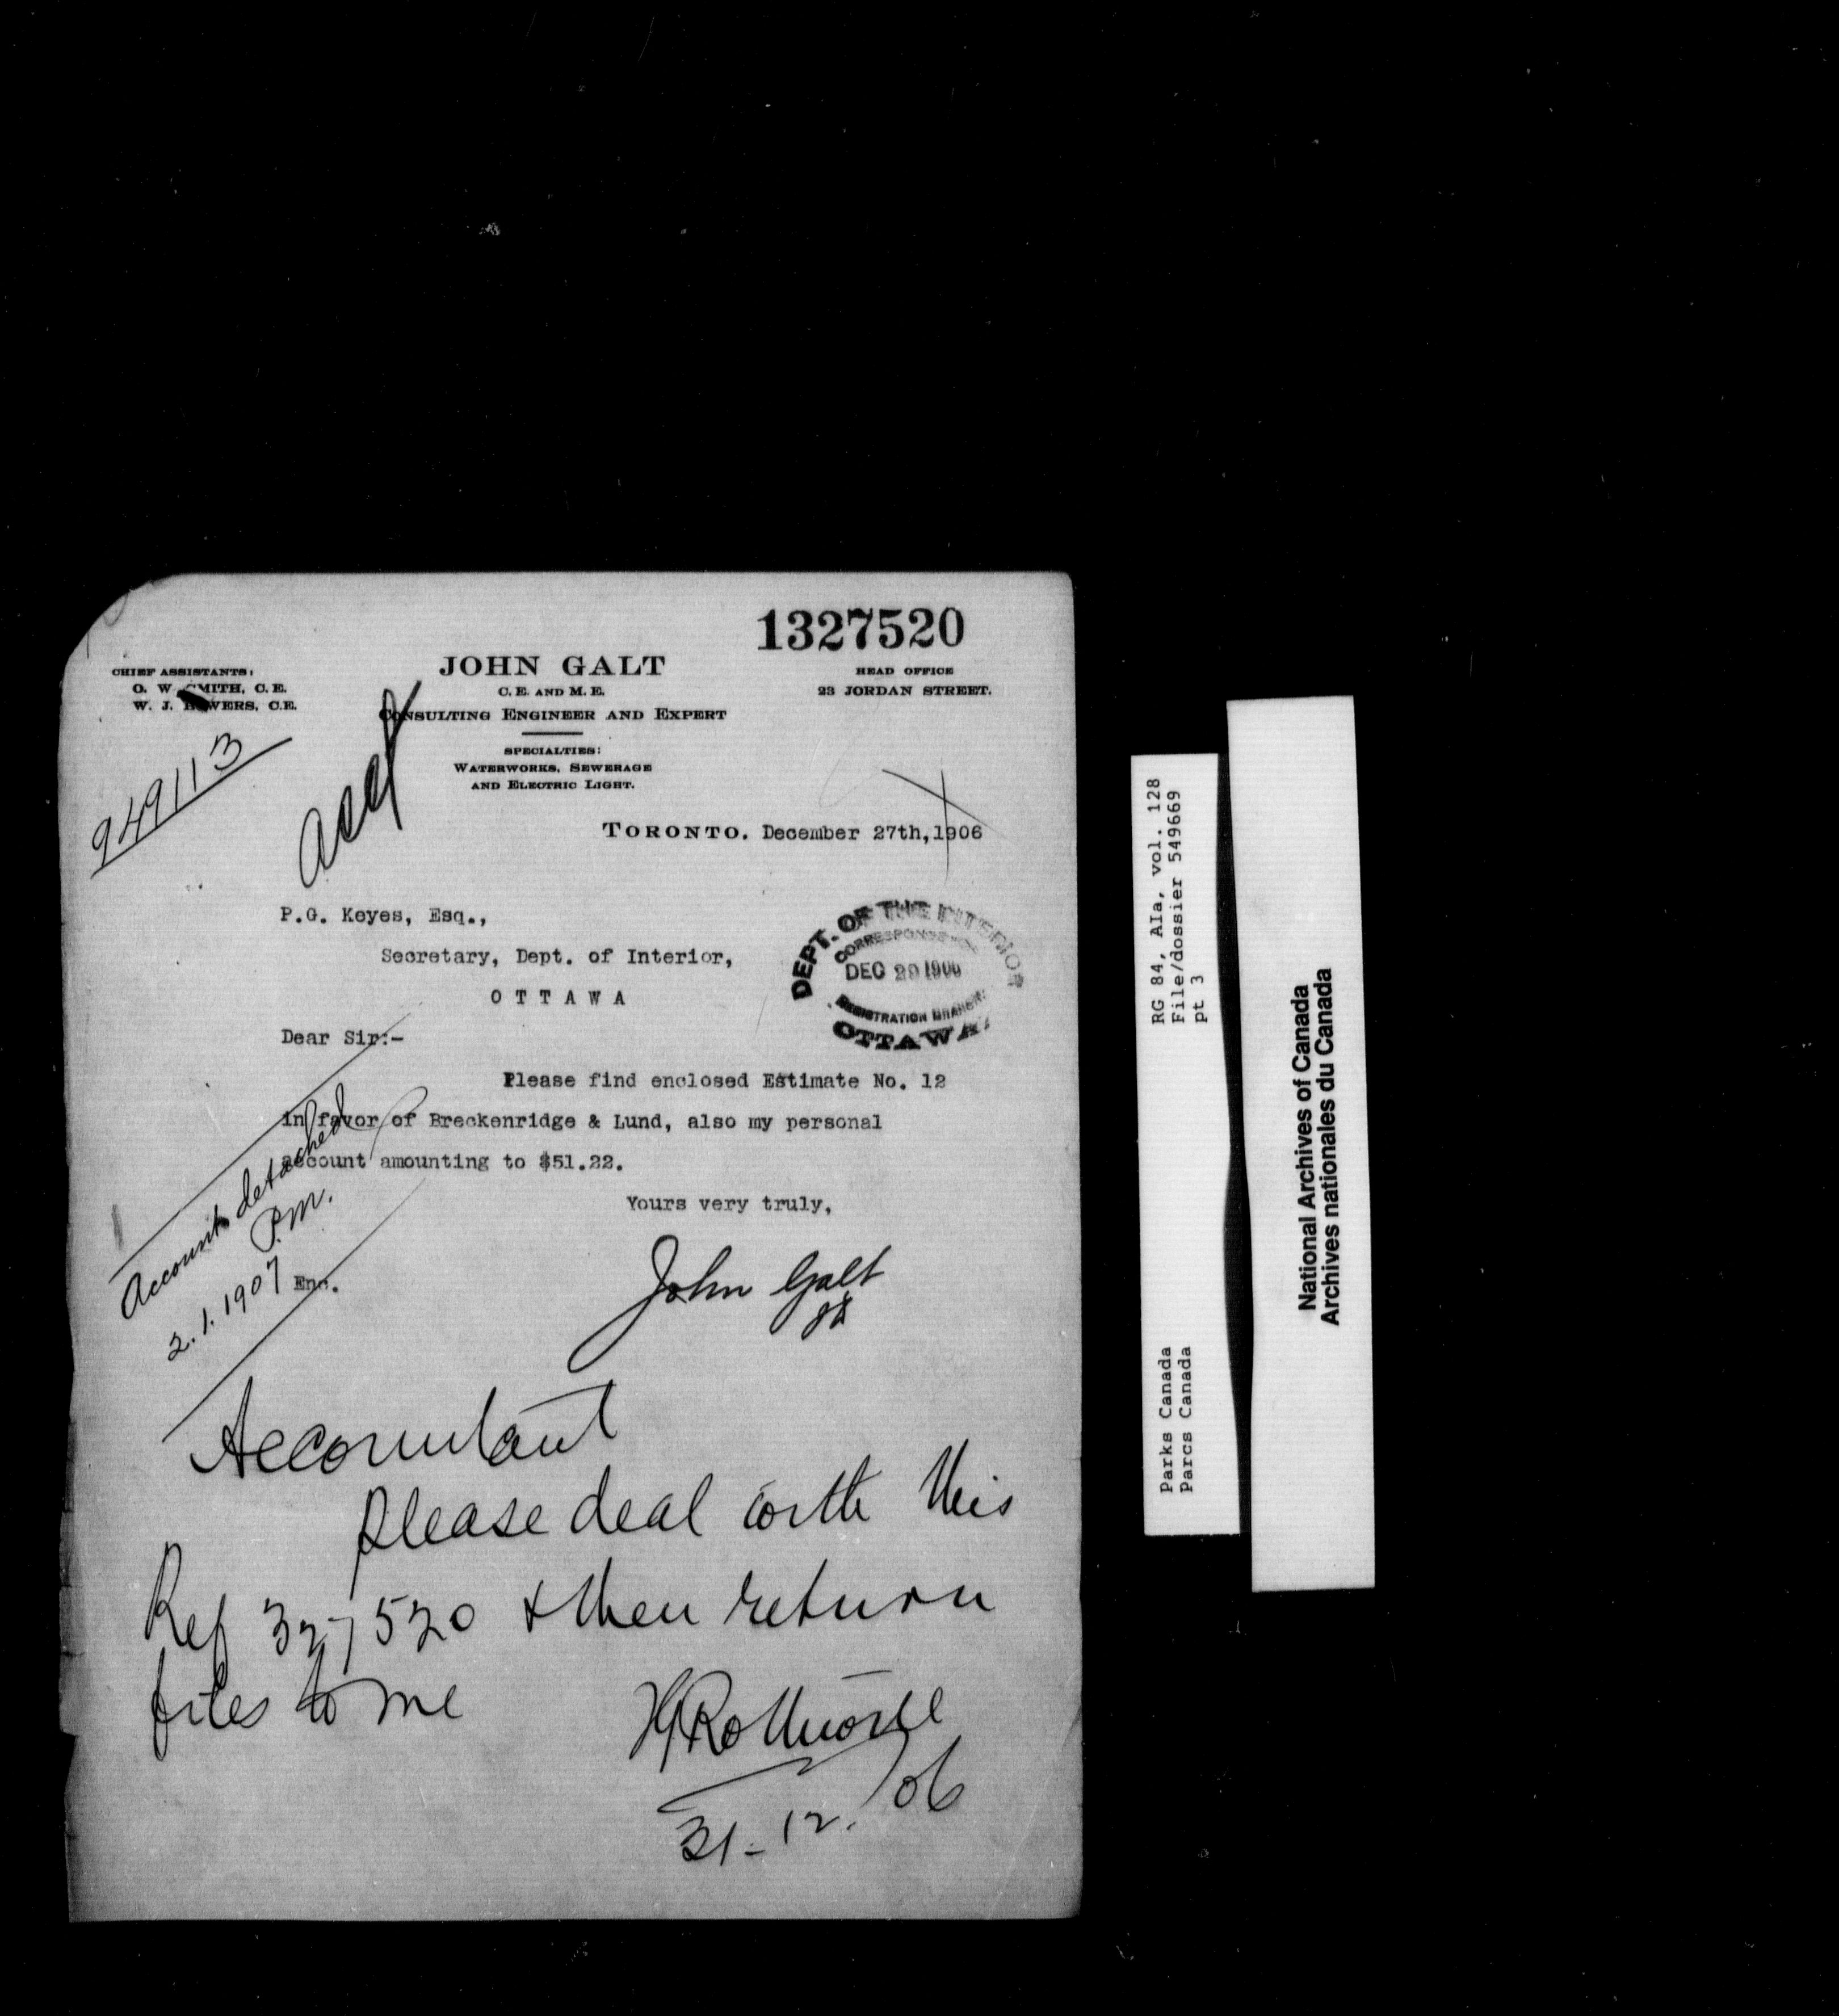 1327520
CHIEF ASSISTANTS:
O. W. SMITH, C.E.
W. J. BOWERS, C.E.
JOHN GALT
C. E. AND M. E.
CONSULTING ENGINEER AND EXPERT
SPECIALTIES:
WATERWORKS, SEWERAGE
AND ELECTRIC LIGHT.
HEAD OFFICE
23 JORDAN STREET.
949113
TORONTO. December 27th, 1906
P.G. Keyes, Esq.,
Secretary, Dept. of Interior,
OTTAWA
DEPT. OF THE INTERIOR
CORRESPONDENCE
DEC 29 1906
REGISTRATION BRANCH
OTTAWA
Dear Sir:-
Please find enclosed Estimate No. 12
in favor of Breckenridge & Lund, also my personal
account amounting to $51.22.
Yours very truly,
John Galt
Enc.
Accounts detached
P.M.
2.1.1907
Accountant
please deal with this
Ref 327520 & then return
files to me
31-12./06
RG 84, AIa, vol. 128
File/dossier 549669
pt 3
Parks Canada
Parcs Canada
National Archives of Canada
Archives nationales du Canada